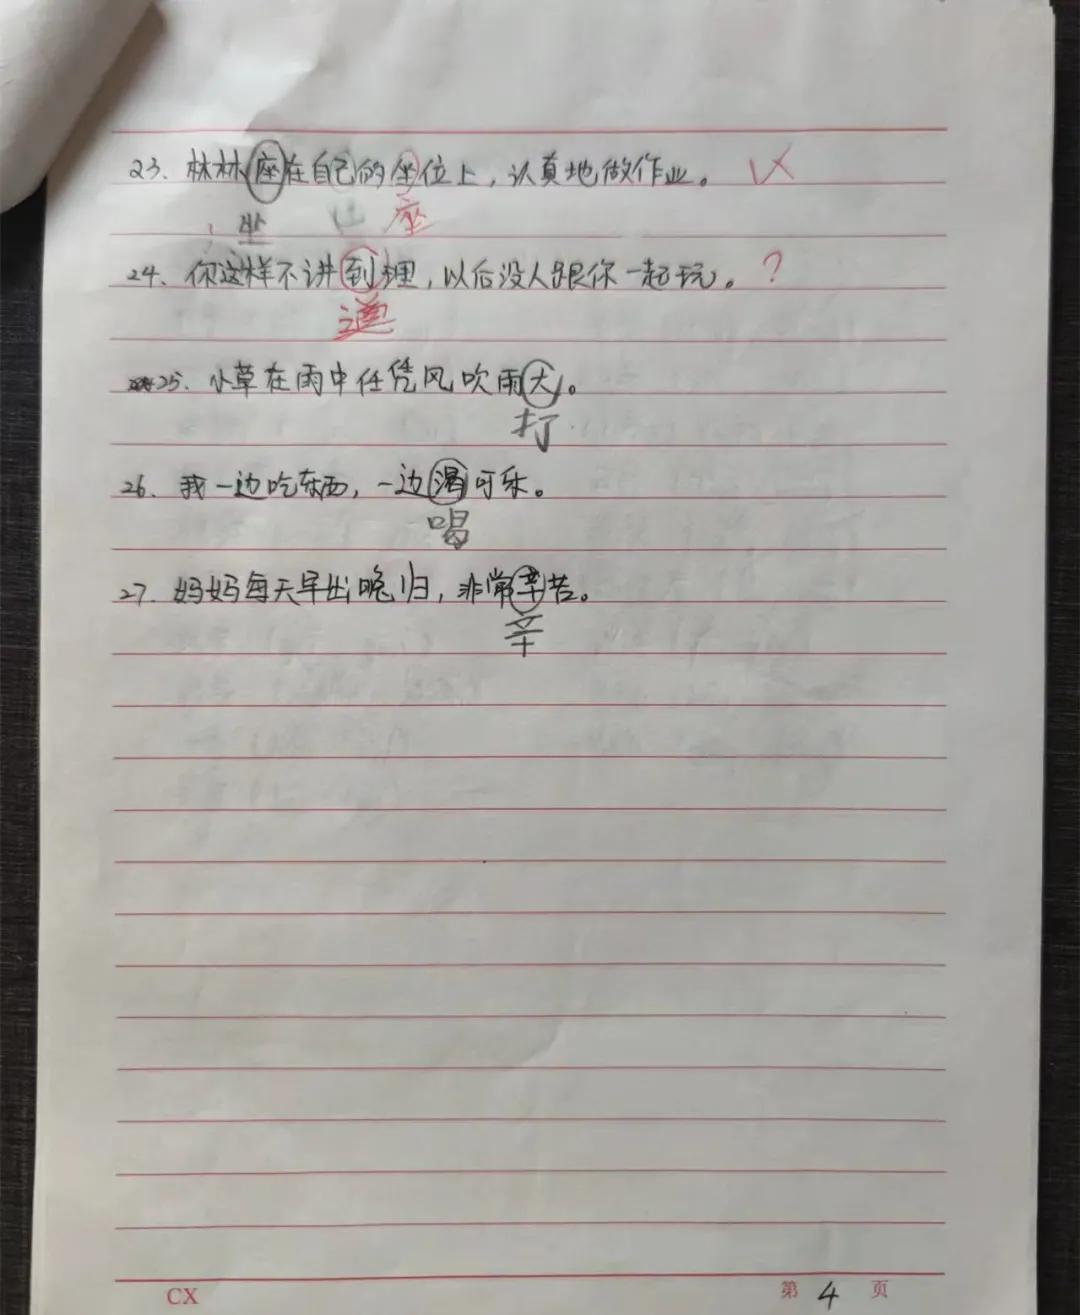 23、林林座在自己的坐位上，认真地做作业。
坐 座
24、你这样不讲到理，以后没人跟你一起玩。？
道
25、小草在雨中任凭风吹雨大。
打
26、我一边吃东西，一边渴可乐。
喝
27、妈妈每天早出晚归，非常幸苦。
辛
CX 第 4 页